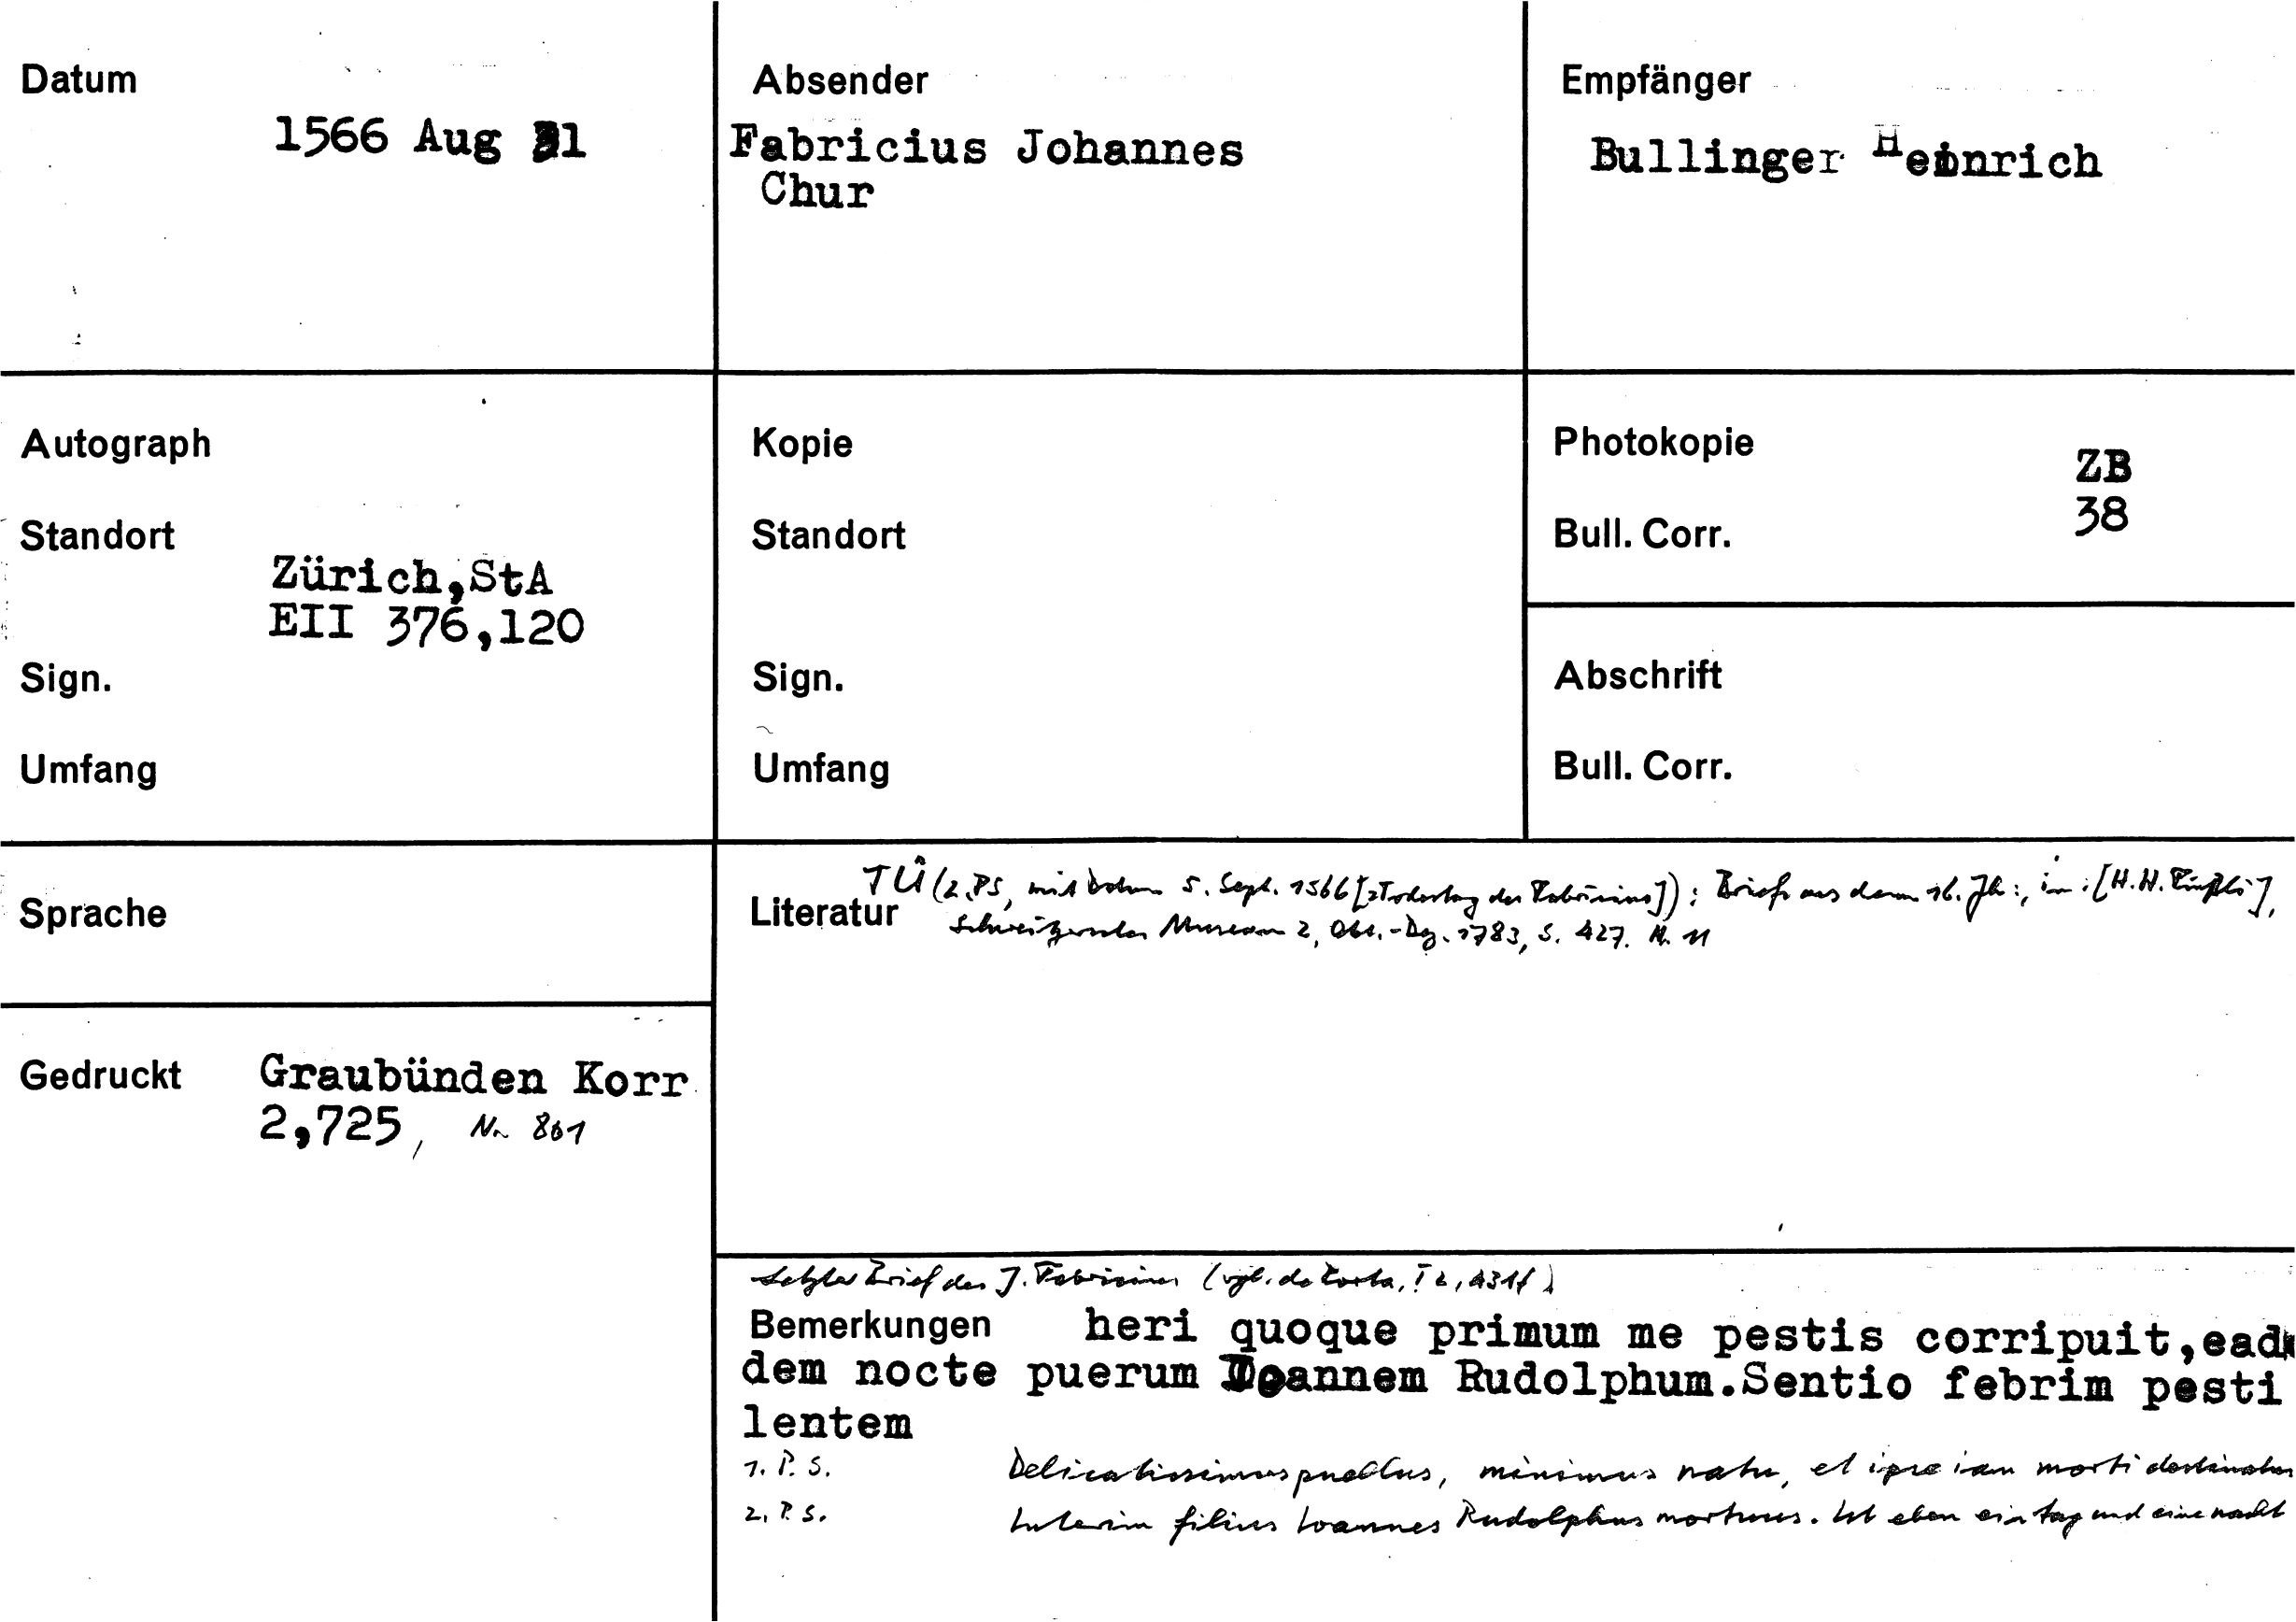 Datum
1566 Aug 31
Absender
Fabricius Johannes
Chur
Empfänger
Bullinger Heinrich
Autograph
Standort
Zürich,StA
EII 376,120
Sign.
Umfang
Kopie
Standort
Sign.
Umfang
Photokopie
ZB
Bull. Corr.
38
Abschrift
Bull. Corr.
Sprache
Literatur
TÜ (2. PS, mit Datum 5. Sept. 1566 [=Todestag des Fabricius]): Briefe aus dem 16. Jh., in: [H.H. Füssli],
Schweitzersches Museum 2, Okt.-Dez. 1783, S. 427. N. 11
Gedruckt
Graubünden Korr
2,725, Nr 801
Letzter Brief des J. Fabricius (vgl. de Porta, I 2, 431f)
Bemerkungen heri quoque primum me pestis corripuit,ead
dem nocte puerum Joannem Rudolphum.Sentio febrim pesti
lentem
1. P. S. Delicatissimus puellus, minimus natu, et ipse iam morti destinatus
2. P. S. Interim filius Ioannes Rudolphus mortuus. Ist eben ein tag und eine nacht